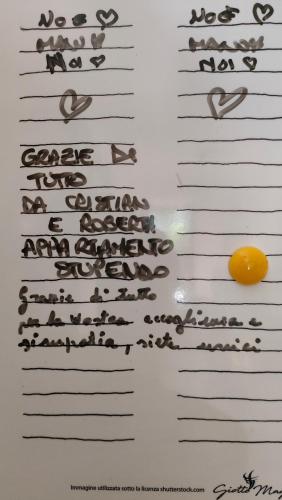 NOE ♡ NOE ♡
NOI ♡ NOI ♡
♡ ♡
GRAZIE DI
TUTTO
DA CRISTIAN
E ROBERTA
APPARTAMENTO
STUPENDO
Grazie di tutto
per la vostra accoglienza e
simpatia, siete unici
Immagine utilizzata sotto la licenza shutterstock.com
Giotto